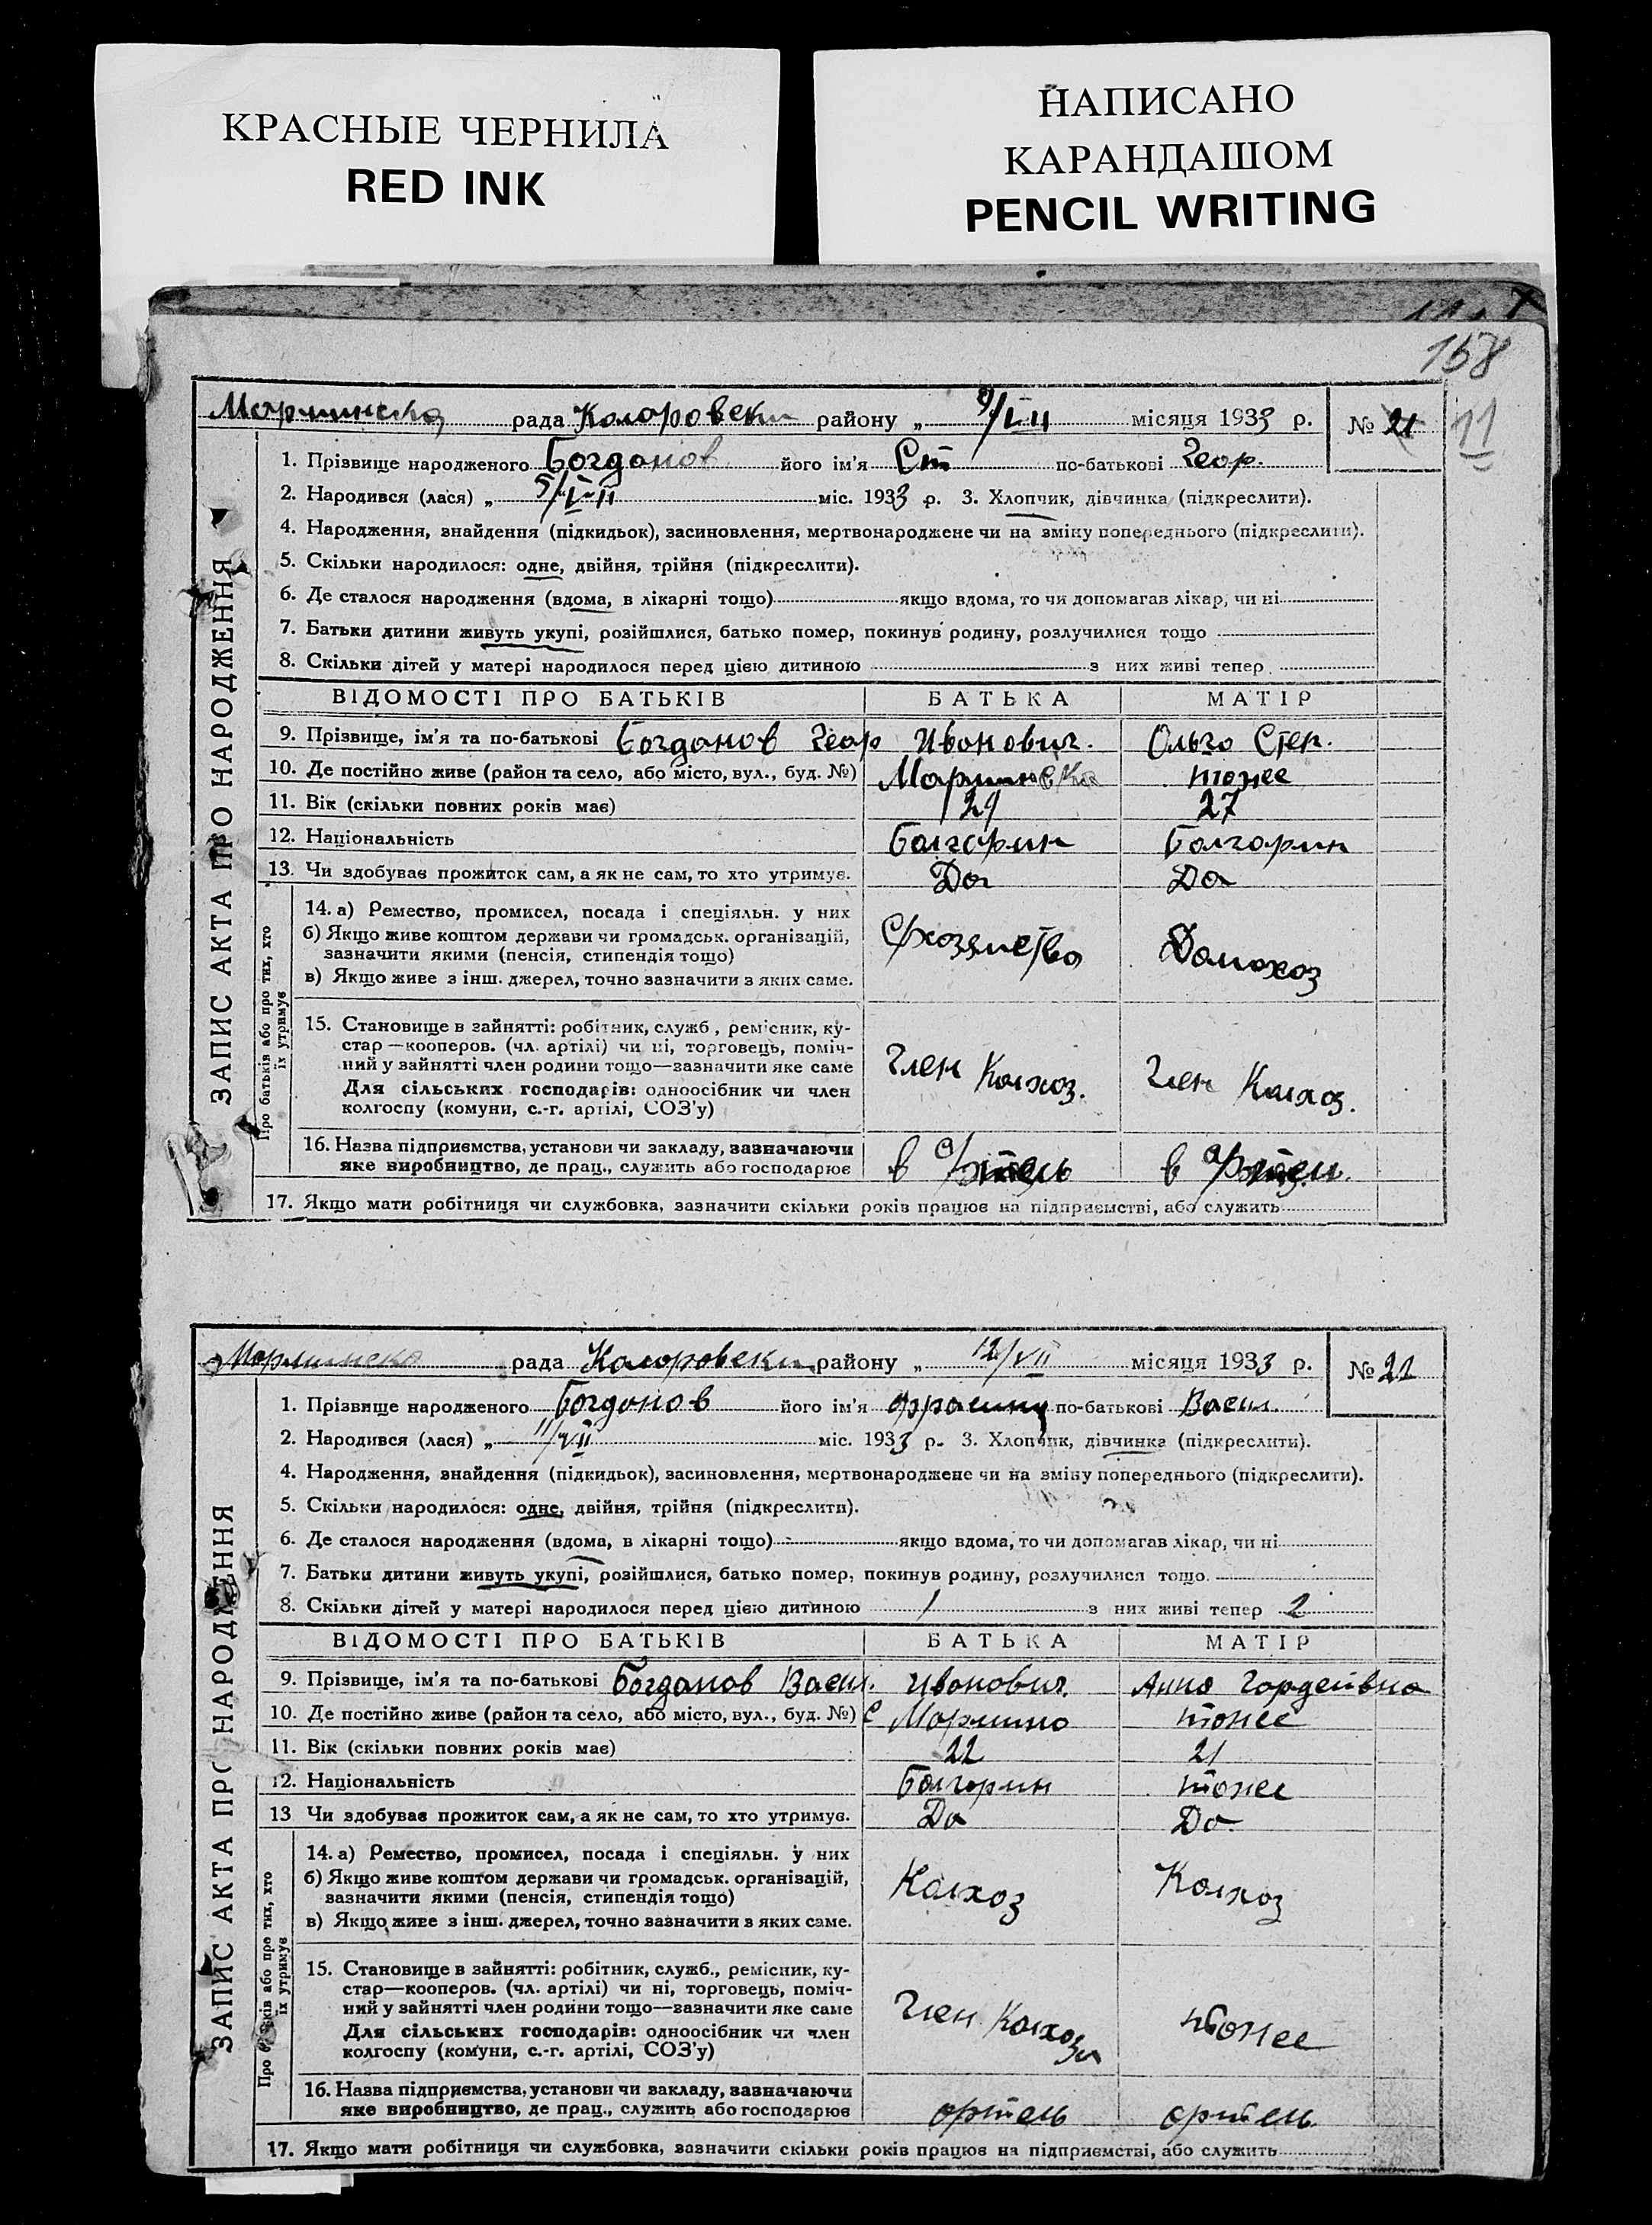 КРАСНЫЕ ЧЕРНИЛА
RED INK
НАПИСАНО
КАРАНДАШОМ
PENCIL WRITING
158
11
рада Коларовски району „ 9/VII місяця 1933 р. № 21
ЗАПИС АКТА ПРО НАРОДЖЕННЯ
1. Прізвище народженого Богданов його ім'я Ст по-батькові Геор.
2. Народився (лася) „ 5/VII міс. 1933 р. 3. Хлопчик, дівчинка (підкреслити).
4. Народження, знайдення (підкидьок), засиновлення, мертвонароджене чи на зміну попереднього (підкреслити).
5. Скільки народилося: одне, двійня, трійня (підкреслити).
6. Де сталося народження (вдома, в лікарні тощо) якщо вдома, то чи допомагав лікар, чи ні
7. Батьки дитини живуть укупі, розійшлися, батько помер, покинув родину, розлучилися тощо
8. Скільки дітей у матері народилося перед цією дитиною з них живі тепер
ВІДОМОСТІ ПРО БАТЬКІВ БАТЬКА МАТІР
9. Прізвище, ім'я та по-батькові Богданов Геор Иванович. Ольга Степ.
10. Де постійно живе (район та село, або місто, вул., буд. №) тоже
11. Вік (скільки повних років має) 29 27
12. Національність Болгарин Болгарин
13. Чи здобуває прожиток сам, а як не сам, то хто утримує. Да Да
Про батьків або про тих, хто їх утримує
14. а) Ремество, промисел, посада і спеціяльн. у них
б) Якщо живе коштом держави чи громадськ. організацій,
зазначити якими (пенсія, стипендія тощо)
в) Якщо живе з інш. джерел, точно зазначити з яких саме.
Домохоз
15. Становище в зайнятті: робітник, служб., ремісник, ку-
стар—кооперов. (чл. артілі) чи ні, торговець, поміч-
ний у зайнятті член родини тощо—зазначити яке саме
Для сільських господарів: одноосібник чи член
колгоспу (комуни, с.-г. артілі, СОЗ'у)
Член Колхоз. Член Колхоз.
16. Назва підприємства, установи чи закладу, зазначаючи
яке виробництво, де прац., служить або господарює
в Артель в артел.
17. Якщо мати робітниця чи службовка, зазначити скільки років працює на підприємстві, або служить
рада Коларовски району „ 12/VII місяця 1933 р. № 22
ЗАПИС АКТА ПРО НАРОДЖЕННЯ
1. Прізвище народженого Богданов його ім'я по-батькові Васил.
2. Народився (лася) „ 11/VII міс. 1933 р. 3. Хлопчик, дівчинка (підкреслити).
4. Народження, знайдення (підкидьок), засиновлення, мертвонароджене чи на зміну попереднього (підкреслити).
5. Скільки народилося: одне, двійня, трійня (підкреслити).
6. Де сталося народження (вдома, в лікарні тощо) якщо вдома, то чи допомагав лікар, чи ні
7. Батьки дитини живуть укупі, розійшлися, батько помер, покинув родину, розлучилися тощо.
8. Скільки дітей у матері народилося перед цією дитиною 1 з них живі тепер 2
ВІДОМОСТІ ПРО БАТЬКІВ БАТЬКА МАТІР
9. Прізвище, ім'я та по-батькові Богданов Васил. Иванович. Анна Гордеивна
10. Де постійно живе (район та село, або місто, вул., буд. №) с Марино тоже
11. Вік (скільки повних років має) 22 21
12. Національність Болгарин тоже
13 Чи здобуває прожиток сам, а як не сам, то хто утримує. Да Да
Про батьків або про тих, хто їх утримує
14. а) Ремество, промисел, посада і спеціяльн. у них
б) Якщо живе коштом держави чи громадськ. організацій,
зазначити якими (пенсія, стипендія тощо)
в) Якщо живе з інш. джерел, точно зазначити з яких саме.
Колхоз Колхоз
15. Становище в зайнятті: робітник, служб., ремісник, ку-
стар—кооперов. (чл. артілі) чи ні, торговець, поміч-
ний у зайнятті член родини тощо—зазначити яке саме
Для сільських господарів: одноосібник чи член
колгоспу (комуни, с.-г. артілі, СОЗ'у)
Член Колхоза тоже
16. Назва підприємства, установи чи закладу, зазначаючи
яке виробництво, де прац., служить або господарює
артель артель.
17. Якщо мати робітниця чи службовка, зазначити скільки років працює на підприємстві, або служить